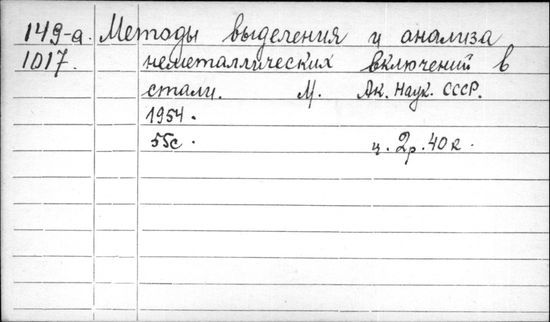 149-а. Методы выделения и анализа
1017. неметаллических включений в
стали. М. Ак. Наук. СССР.
1954.
55с. ц. 2р. 40к.